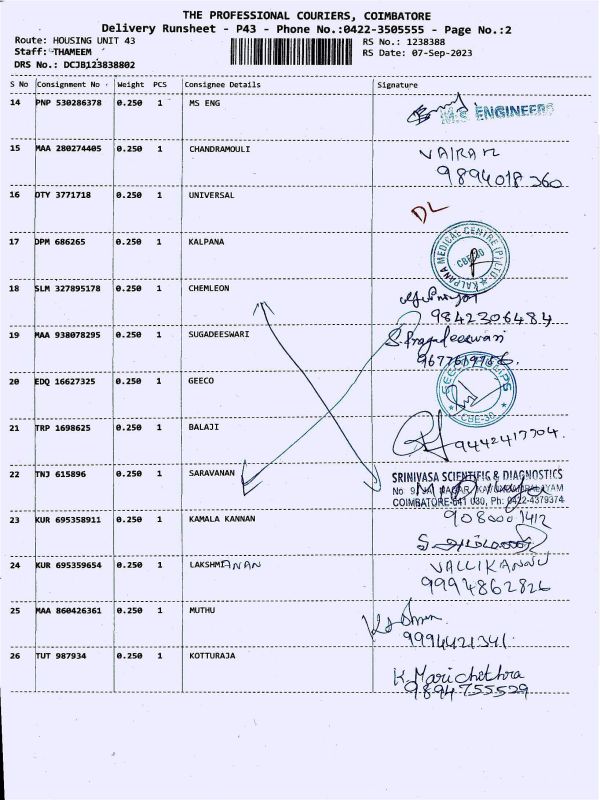 THE PROFESSIONAL COURIERS, COIMBATORE
Delivery Runsheet - P43 - Phone No.:0422-3505555 - Page No.:2
Route: HOUSING UNIT 43 RS No.: 1238388
Staff: THAMEEM RS Date: 07-Sep-2023
DRS No.: DCJB123838802
S No Consignment No Weight PCS Consignee Details Signature
14 PNP 530286378 0.250 1 MS ENG
M.S ENGINEERS
15 MAA 280274405 0.250 1 CHANDRAMOULI
VAIRAM
9894018360
16 OTY 3771718 0.250 1 UNIVERSAL
DL
17 DPM 686265 0.250 1 KALPANA
KALPANA MEDICAL CENTRE (P) LTD
CBE-30
18 SLM 327895178 0.250 1 CHEMLEON
9842306484
19 MAA 938078295 0.250 1 SUGADEESWARI
20 EDQ 16627325 0.250 1 GEECO
CBE-30
21 TRP 1698625 0.250 1 BALAJI
9442417704.
22 TNJ 615896 0.250 1 SARAVANAN
SRINIVASA SCIENTIFIC & DIAGNOSTICS
COIMBATORE-641 030, Ph: 0422-4379374
23 KUR 695358911 0.250 1 KAMALA KANNAN
9080001412
24 KUR 695359654 0.250 1 LAKSHMIANAN
VALLIKANNU
9994862826
25 MAA 860426361 0.250 1 MUTHU
9994421341.
26 TUT 987934 0.250 1 KOTTURAJA
K. Marichethra
9894755529